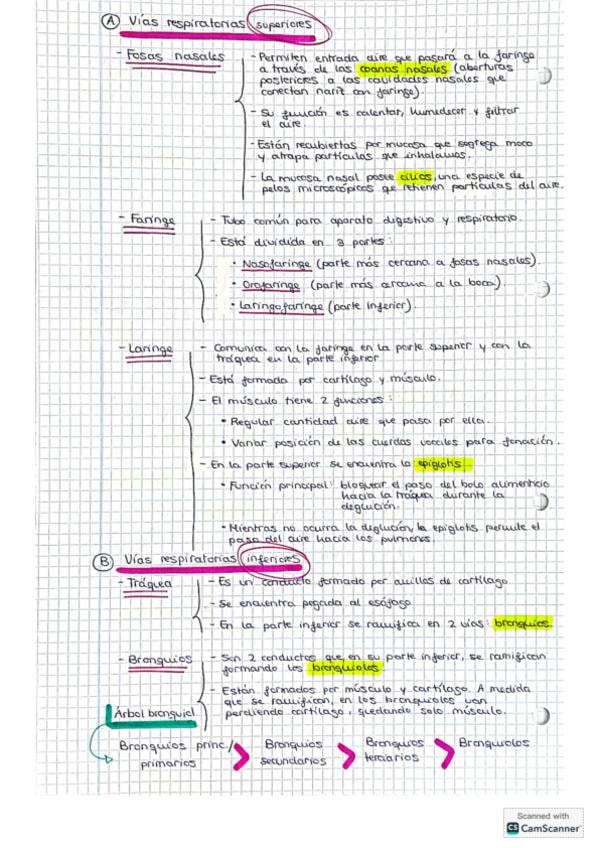 A Vías respiratorias superiores
- Fosas nasales
- Permiten entrada aire que pasará a la faringe
a través de las coanas nasales (aberturas
posteriores a las cavidades nasales que
conectan nariz con faringe).
- Su función es calentar, humedecer y filtrar
el aire.
- Están recubiertas por mucosa que segrega moco
y atrapa partículas que inhalamos.
- La mucosa nasal posee cilios, una especie de
pelos microscópicos que retienen partículas del aire.
- Faringe
- Tubo común para aparato digestivo y respiratorio.
- Está dividida en 3 partes:
• Nasofaringe (parte más cercana a fosas nasales).
• Orofaringe (parte más cercana a la boca).
• Laringofaringe (parte inferior).
- Laringe
- Comunica con la faringe en la parte superior y con la
tráquea en la parte inferior
- Está formada por cartílago y músculo.
- El músculo tiene 2 funciones:
• Regular cantidad aire que pasa por ella.
• Variar posición de las cuerdas vocales para fonación.
- En la parte superior se encuentra la epiglotis
• Función principal: bloquear el paso del bolo alimenticio
hacia la tráquea durante la
deglución.
• Mientras no ocurra la deglución, la epiglotis permite el
paso del aire hacia los pulmones.
B Vías respiratorias inferiores
- Tráquea
- Es un conducto formado por anillos de cartílago
- Se encuentra pegada al esófago
- En la parte inferior se ramifica en 2 vías: bronquios.
- Bronquios
- Son 2 conductos que, en su parte inferior, se ramifican
formando los bronquiolos
- Están formados por músculo y cartílago. A medida
que se ramifican, en los bronquiolos van
perdiendo cartílago, quedando solo músculo.
Árbol bronquial
Bronquios princ/
primarios
Bronquios
secundarios
Bronquios
terciarios
Bronquiolos
Scanned with
CS CamScanner